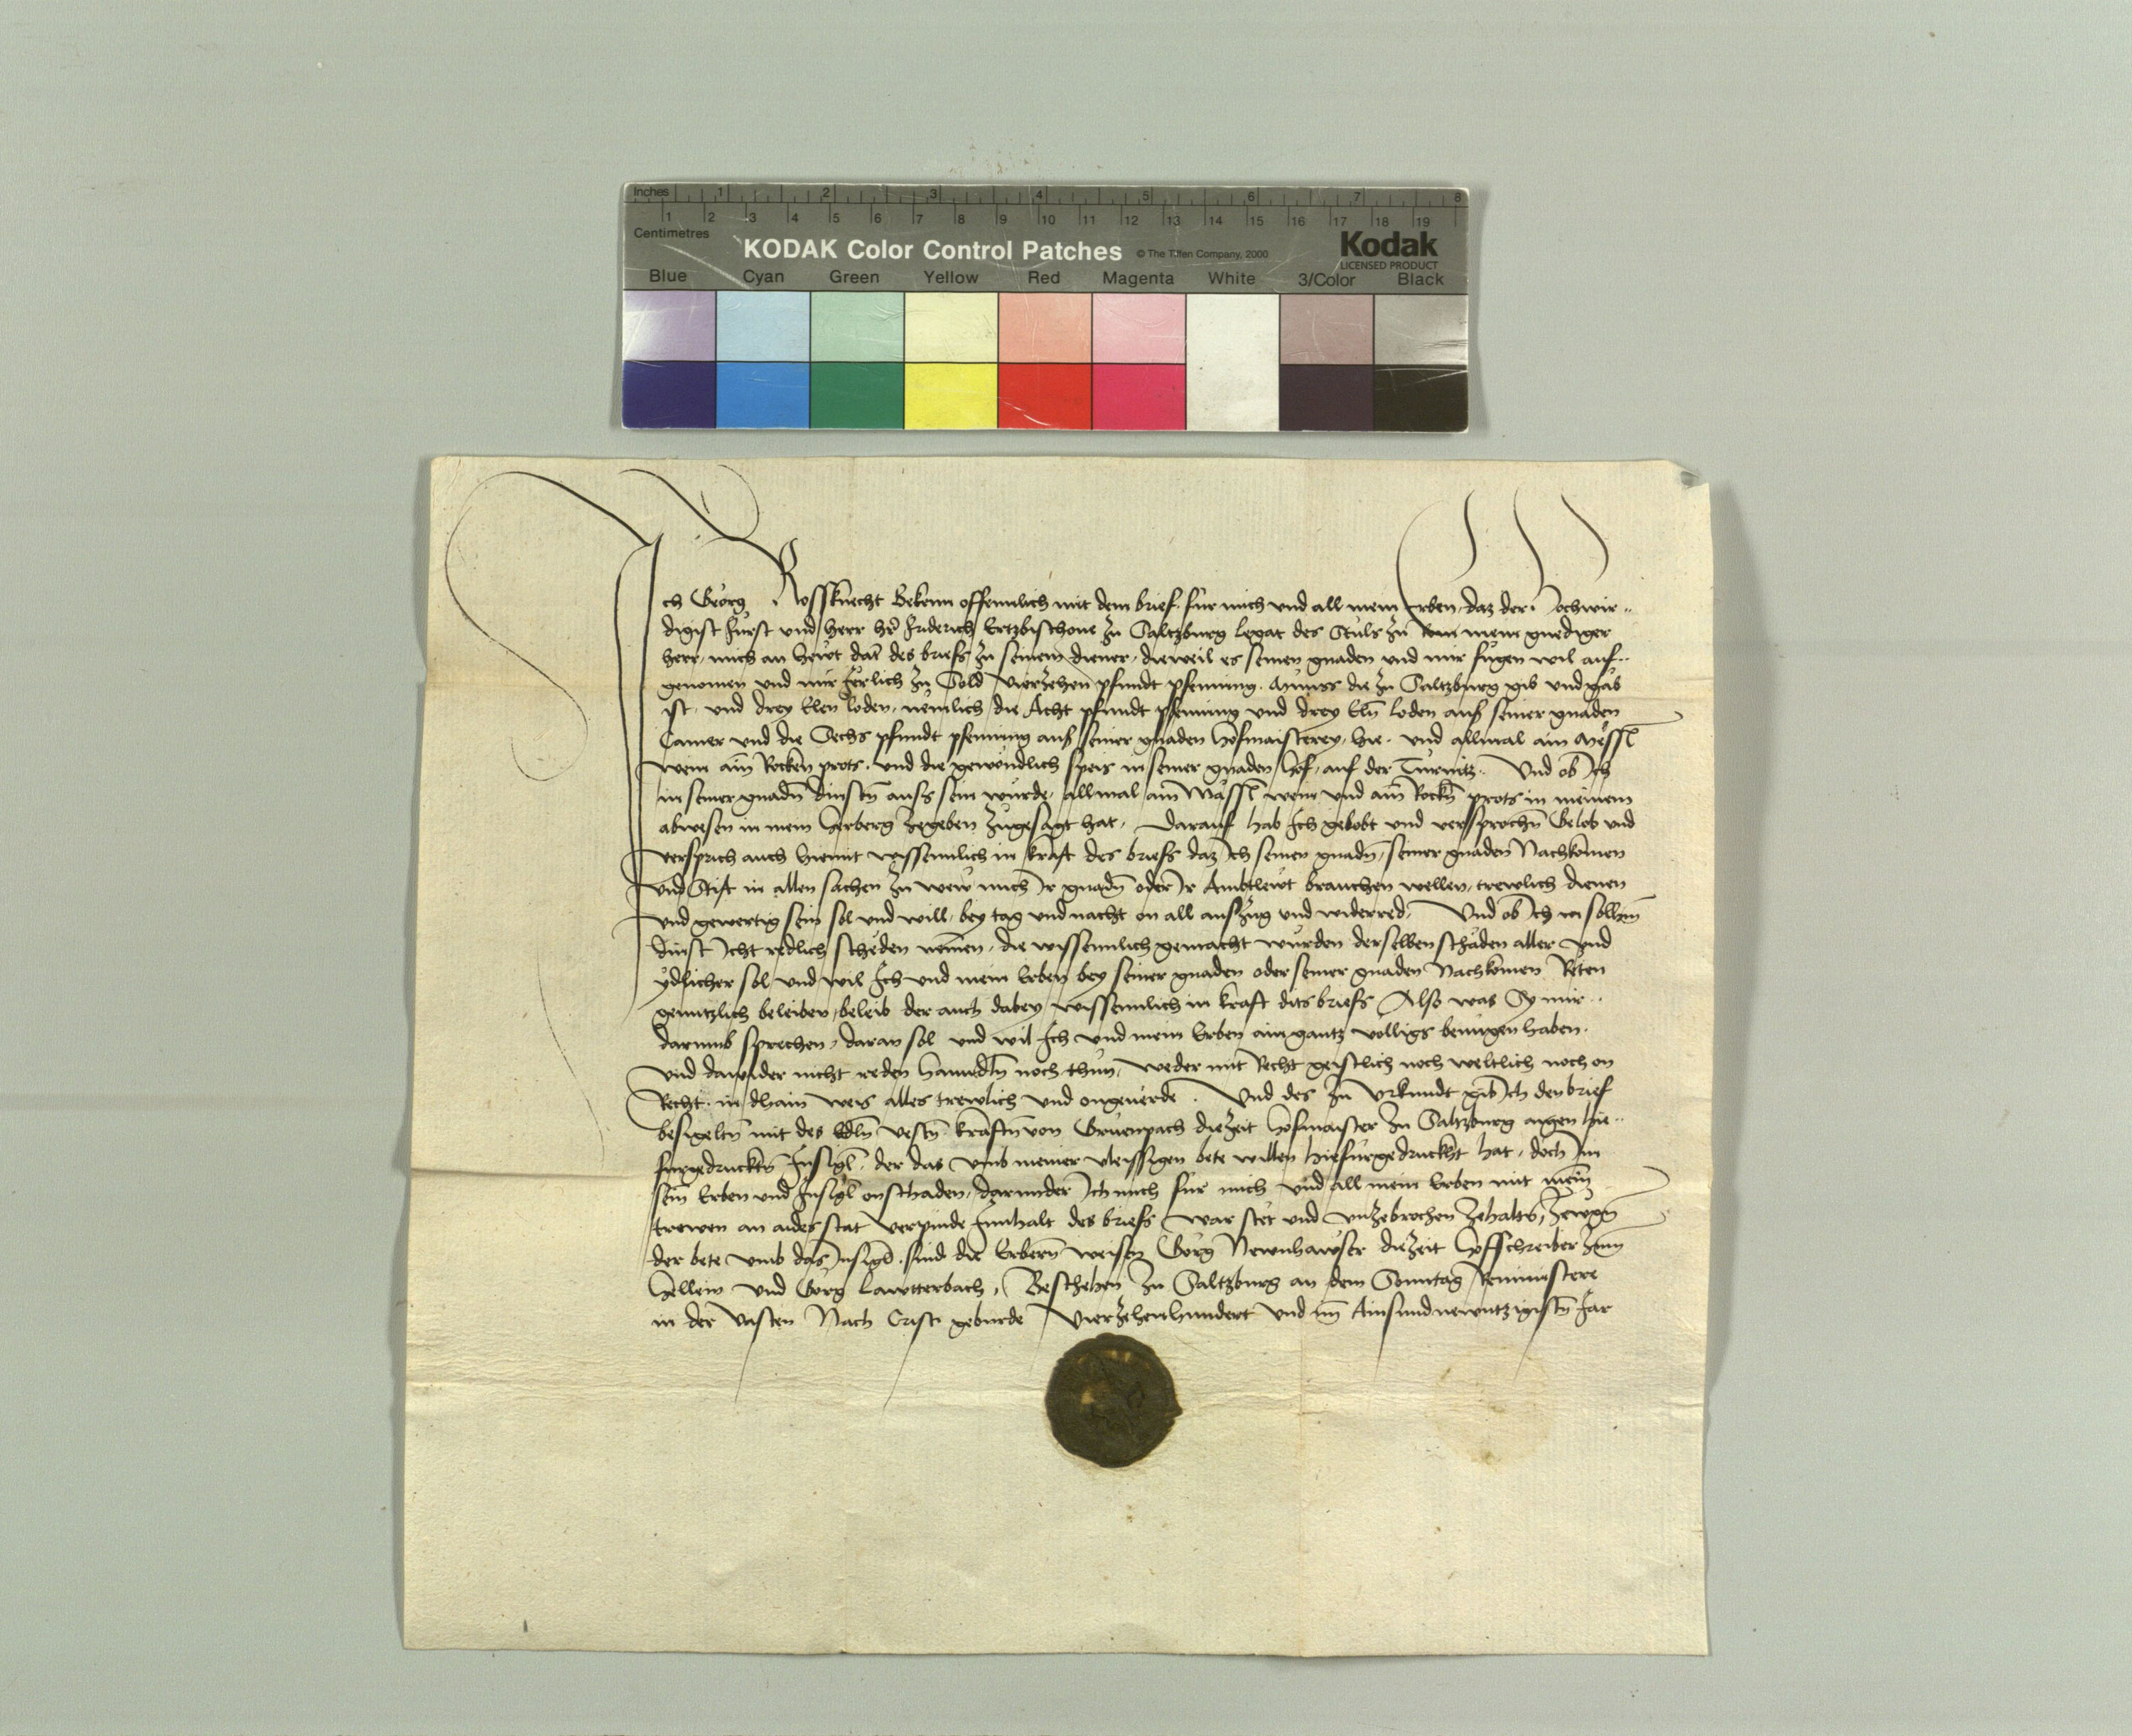 Inches 1 2 3 4 5 6 7 8
1 2 3 4 5 6 7 8 9 10 11 12 13 14 15 16 17 18 19
Centimetres
KODAK Color Control Patches © The Tiffen Company, 2000 Kodak
LICENSED PRODUCT
Blue Cyan Green Yellow Red Magenta White 3/Color Black
Ich Georg Rossknecht Bekenn offennlich mit dem brief fur mich vnd all mein Erben, daz der Hochwir¬
digist Furst vnd herr her Friderich Ertzbischoue zu Saltzburg legat des Stuls zu Rom mein gnediger
herr, mich an hewt dat des briefs zu seinem diener, dieweil es seinen gnaden vnd mir fugen wil auf¬
genomen vnd mir Jerlich zu Sold vierzehen pfundt pfenning. Munss die zu Saltzburg gib vnd gab
ist, vnd drey Elen loden, nemlich die Acht pfundt pfenning vnd drey Eln loden aus seiner gnaden
Camer vnd die Sechs pfundt pfenning aus seiner gnaden Hofmaisterey, hie. vnd allmal ain Messl
wein ain Rocken prots. vnd die gewondlich speis in seiner gnaden Hof, auf der Turnitz. Vnd ob Ich
in seiner gnadn dinstn auss sein wurde, allmal ain Massl wein vnd ain Rockn prots in meinem
abwesen in mein Herberg zegeben zugesagt hat, Darauf hab Ich gelobt vnd versprochn Gelob vnd
versprich auch hiemit wissenlich in kraft des briefs daz Ich seinen gnadn, seiner gnaden Nachkomen
vnd Stift in allen sachen zu wew mich Ir gnadn oder Ir Ambtlewt brauchen wellen, trewlich dienen
vnd gewertig sein sol vnd will, bey tag vnd nacht on all auszug vnd widerred, Vnd ob Ich in solhem
dinst Icht redlich scheden nemen, die wissenlich gemacht wurden derselben schaden aller vnd
ydlicher sol vnd wil Ich vnd mein Erben bey seiner gnaden oder seiner gnaden Nachkomen Reten
genntzlich beleiben, beleib der auch dabey wissenlich in kraft dits briefs Also was Sy mir
darumb sprechen, daran sol vnd wil Ich vnd mein Erben ain gantz volligs benugen haben.
vnd dawider nicht reden hanndln noch thun, weder mit Recht geistlich noch weltlich noch on
Recht. in dhain weis alles trewlich vnd ongeuerde. Vnd des zu Vrkundt gib Ich den brief
besigeltn mit des Edln vestn kraftn von Gruenpach diezeit Hofmaister zu Saltzburg aigen hie¬
furgedrucktn Insigl, der das vmb meiner vleissigen bete willen hiefurgedruckht hat, doch Im
sein Erben vnd Insigl onschaden, darunder Ich mich fur mich vnd all mein Erben mit mein
trewen an aides stat verpinde Innhalt des briefs war stet vnd vnzebrochen zehalten, zewgn
der bete vmb das Insigl. sind die Erbern weisen Gorg Newnhawser diezeit Hofschreiber zum
Hellein vnd Gorg Lawtterbach, Beschehen zu Saltzburg an dem Sonntag Reminiscere
in der Vasten Nach Cristi geburde Vierzehenhundert vnd im Ainsundnewntzigistn Jar